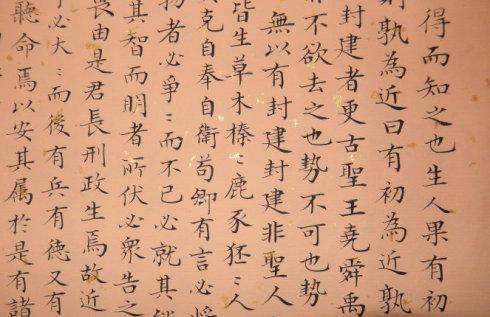 得而知之也生人果有初
孰為近曰有初為近孰
封建者更古聖王堯舜禹
不欲去之也勢不可也勢
無以有封建封建非聖人
皆生草木榛〻鹿豕狉〻人
克自奉自衛荀卿有言必將
物者必爭〻而不已必就其
其智而明者所伏必衆告之
畏由是君長刑政生焉故近
必大〻而後有兵有德又有
聽命焉以安其屬於是有諸